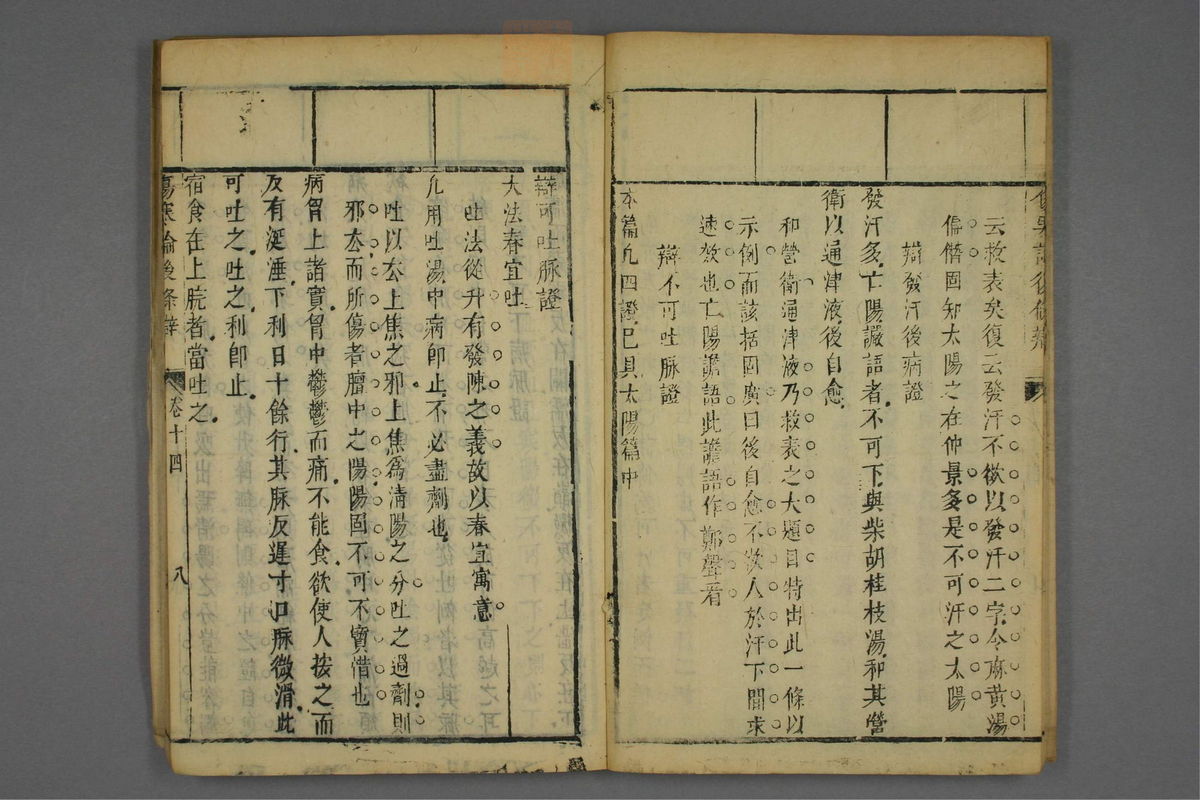 云救表矣復云發汗不欲以發汗二字令麻黃湯
偏僭固知太陽之在仲景多是不可汗之太陽
辯發汗後病證
發汗多亡陽讝語者不可下與柴胡桂枝湯和其營
衛以通津液後自愈
和營衛通津液乃救表之大題目特出此一條以
示例而該括固廣曰後自愈不欲人於汗下間求
速效也亡陽譫語此譫語作鄭聲看
辯不可吐脈證
本篇凡四證已具太陽篇中
辯可吐脈證
大法春宜吐
吐法從升有發陳之義故以春宜寓意
凡用吐湯中病即止不必盡劑也
吐以去上焦之邪上焦爲清陽之分吐之過劑則
邪去而所傷者膻中之陽陽固不可不寶惜也
病胷上諸實胷中鬱鬱而痛不能食欲使人按之而
反有涎涶下利日十餘行其脈反遲寸口脈微滑此
可吐之吐之利即止
宿食在上脘者當吐之
傷寒論後條辯 卷十四 八